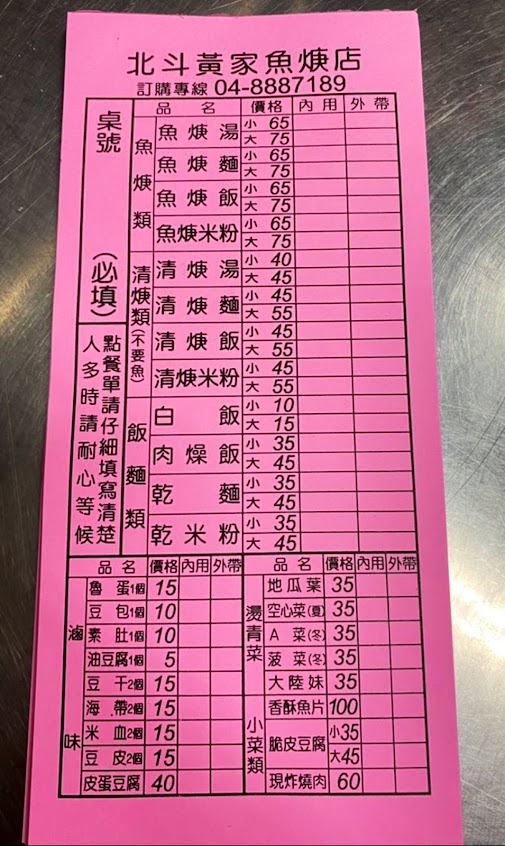 北斗黃家魚焿店
訂購專線 04-8887189
桌號(必填)
點餐單請仔細填寫清楚
人多時請耐心等候
品名 價格 內用 外帶
魚焿類
魚焿湯 小 65 大 75
魚焿麵 小 65 大 75
魚焿飯 小 65 大 75
魚焿米粉 小 65 大 75
清焿類(不要魚)
清焿湯 小 40 大 45
清焿麵 小 45 大 55
清焿飯 小 45 大 55
清焿米粉 小 45 大 55
飯麵類
白飯 小 10 大 15
肉燥飯 小 35 大 45
乾麵 小 35 大 45
乾米粉 小 35 大 45
品名 價格 內用 外帶
滷味
魯蛋1個 15
豆包1個 10
素肚1個 10
油豆腐1個 5
豆干2個 15
海帶2個 15
米血2個 15
豆皮2個 15
皮蛋豆腐 40
品名 價格 內用 外帶
燙青菜
地瓜葉 35
空心菜(夏) 35
A菜(冬) 35
菠菜(冬) 35
大陸妹 35
小菜類
香酥魚片 100
脆皮豆腐 小35 大45
現炸燒肉 60